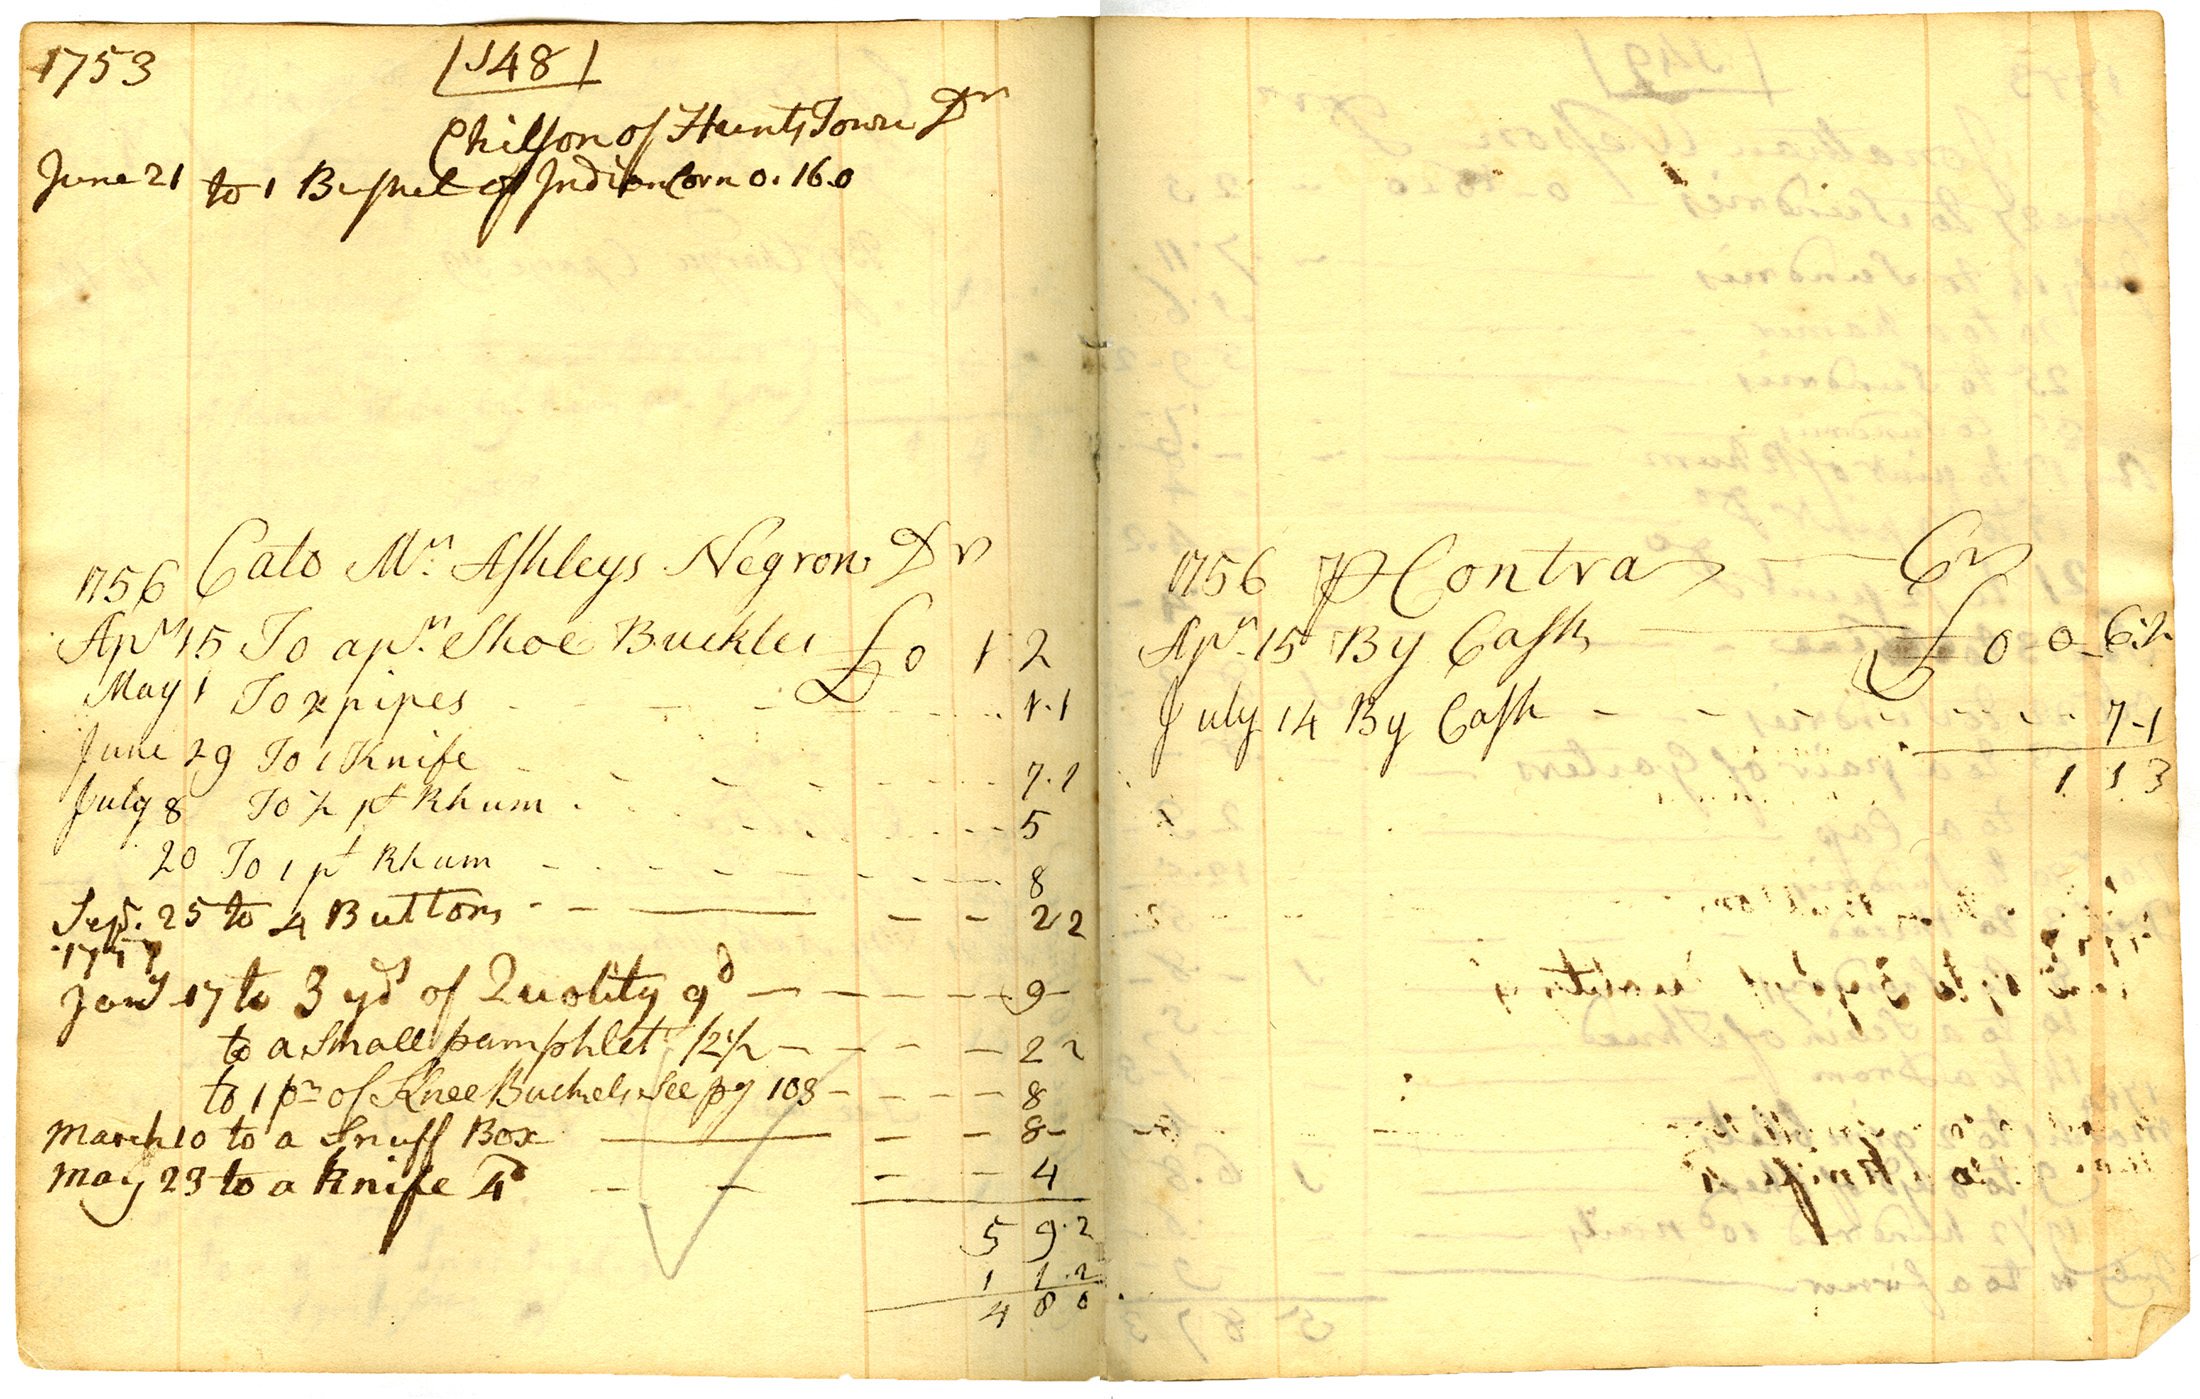 1753
148
Chilson of Hunts Town Dr
June 21 to 1 Bushel of Indian Corn 0. 16.0
1756 Cato Mr. Ashleys Negron Dr
Apr 15 To a pr. Shoe Buckles £ 0 1 2
May 1 To 2 pipes - - - - 1.1
June 29 To 1 Knife - - - - 7.1
July 8 To ½ pt Rhum - - - - 5
20 To 1 pt Rhum - - - - 8
Sept. 25 to 4 Buttons - - - - 2 2
1757
Jany 17 to 3 yds of Quolity 9d - - - - 9
to a Small pamphlet /2½ - - - - 2 2
to 1 pr of Knee Buckels See pg 108 - - - - 8
March 10 to a Snuff Box - - 8
May 23 to a Knife 4d - - - - 4
5 9.2
1 1.2
4 8 0
1756 P Contra Cr
Apr. 15 By Cash £ 0 - 0 - 6.2
July 14 By Cash - - - - 7-1
1. 1 3